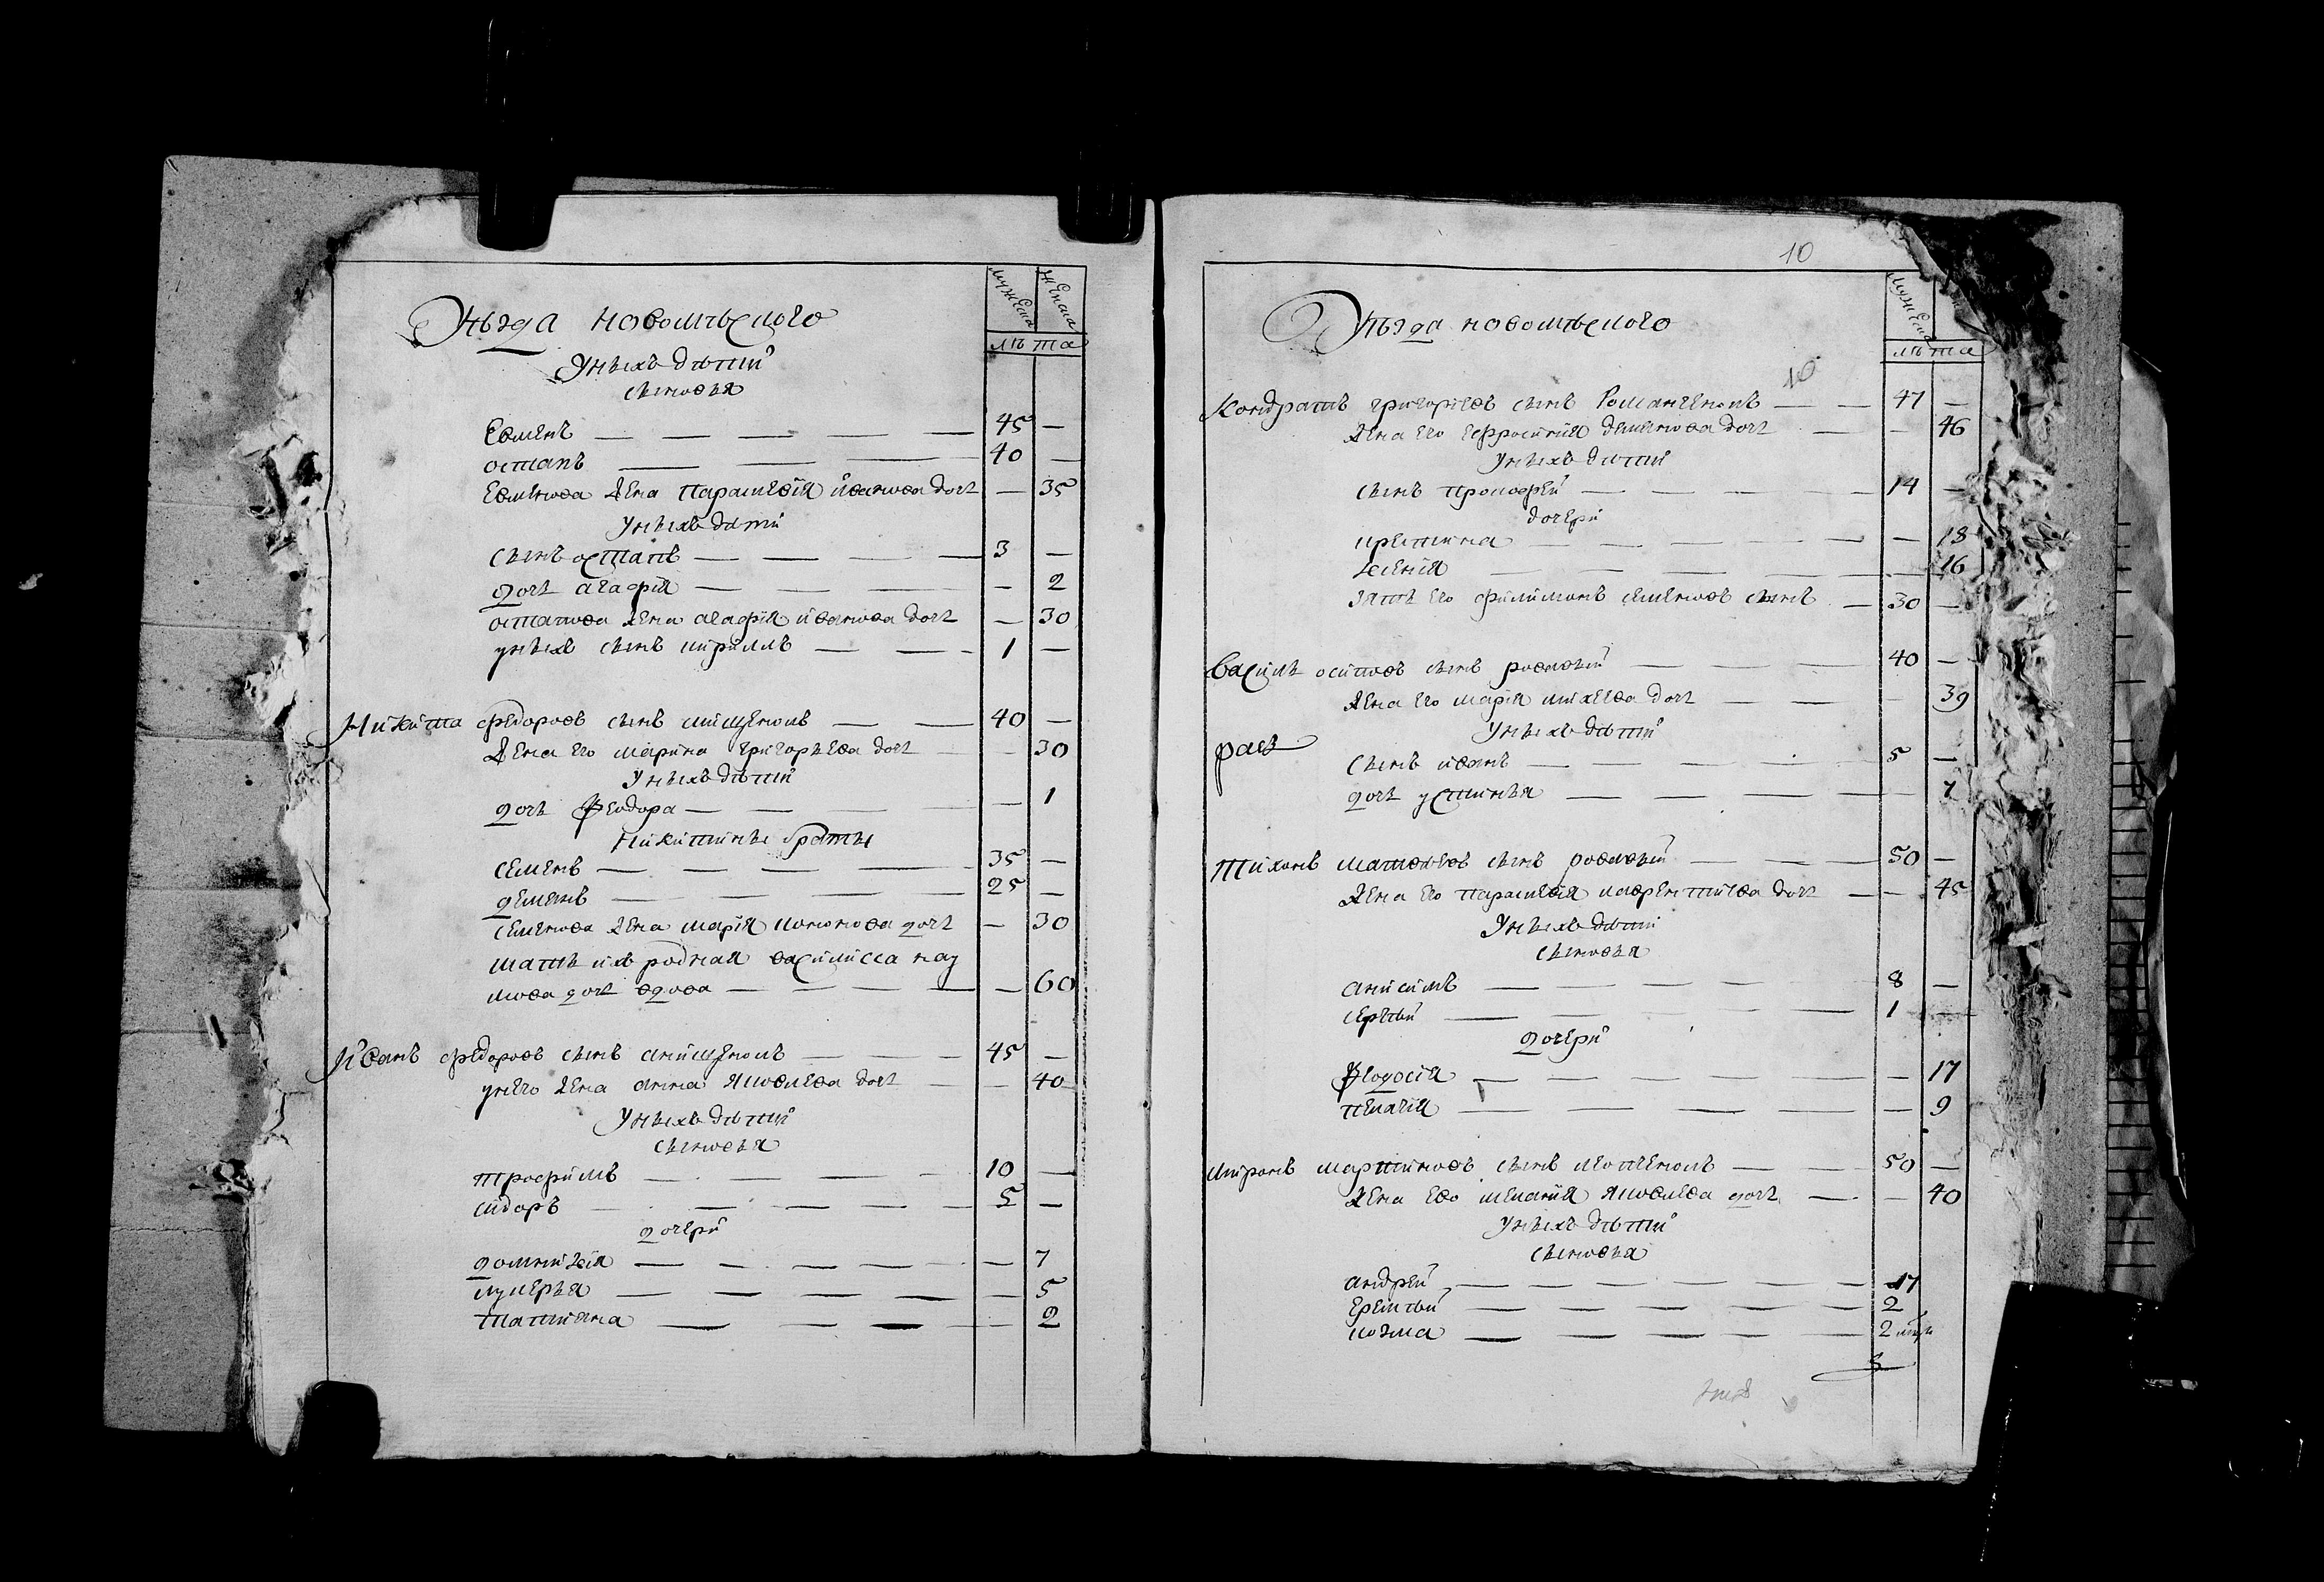 мужеска
женска
лѣта
Уѣзда новомѣскаго
Унихъ дѣтий
сыновья
Евменъ — 45 —
остапъ — 40 —
Евменова жена парасмевия иванова дочь — 35
Унихъ дати
сынъ остапъ — 3 —
дочь агафия — 2
остапова жена агафия иванова дочь — 30
унихъ сынъ кирилъ — 1 —
Никита федоровъ сынъ онищенокъ — 40 —
жена его марина григорьева дочь — 30
Унихъ дѣтий
дочь феодора — 1
Никитины браты
семенъ — 35 —
деменъ — 25 —
семенова жена мария кононова дочь — 30
мать ихъ родная василисса нау
мова дочь вдова — 60
Иванъ федоровъ сынъ онищенокъ — 45 —
унего жена анна яковлева дочь — 40
Унихъ дѣтий
сыновья
трофимъ — 10 —
сидоръ — 5 —
дочери
домникия — 7
лукерья — 5
татияна — 2
10
мужеска
лѣта
Уѣзда новомѣскаго
10
Кондратъ григориевъ сынъ Романенокъ — 47 —
жена его ефросиния деменова дочь — 46
Унихъ дѣтий
сынъ прокофей — 14 —
дочери
христина — 18
ксения — 16
зять его филимонъ семеновъ сынъ — 30 —
Василь осиповъ сынъ ровавый — 40 —
жена его мария михеева дочь — 39
Унихъ дѣтий
сынъ иванъ — 5 —
дочь устинья — 7
Тихонъ матвѣевъ сынъ ровавый — 50 —
жена его парасмевия лаврентиева дочь — 45
Унихъ дѣтий
сыновья
анисимъ — 8 —
сергѣй — 1 —
дочери
феодосия — 17
пелагия — 9
миронъ мартиновъ сынъ леоненокъ — 50 —
жена ево мелания яковлева дочь — 40
Унихъ дѣтий
сыновья
андрей — 17
еремѣй — 2
козма — 2